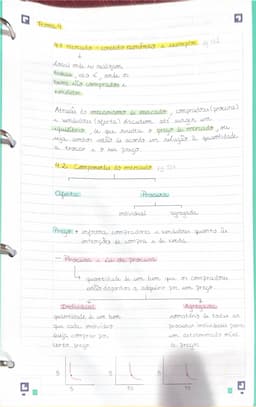 Tema 4
4.1 mercado - conceito económico e exemplos
Local onde se realizam
trocas, isto é, onde os
bens são comprados e
vendidos
Através do mecanismo de mercado, compradores (procura)
e vendedores (oferta) discutem até surgir um
equilíbrio, de que resulta o preço de mercado, ou
seja ambos estão de acordo em relação à quantidade
a trocar e o seu preço.
4.2. Componentes do mercado
Oferta Procura
individual agregada
Preço → informa compradores e vendedores quanto às
intenções de compra e de venda
- Procura e Lei da procura
quantidade de um bem que os compradores
estão dispostos a adquirir por um preço
Individual Agregada
quantidade de um bem somatório de todas as
que cada indivíduo procuras individuais para
deseja comprar por um determinado nível
certo preço de preços